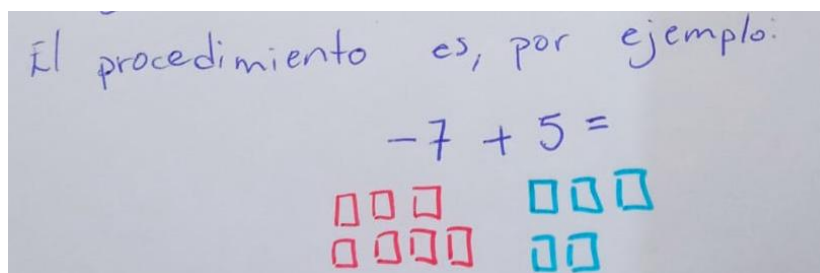 El procedimiento es, por ejemplo:
-7 + 5 =